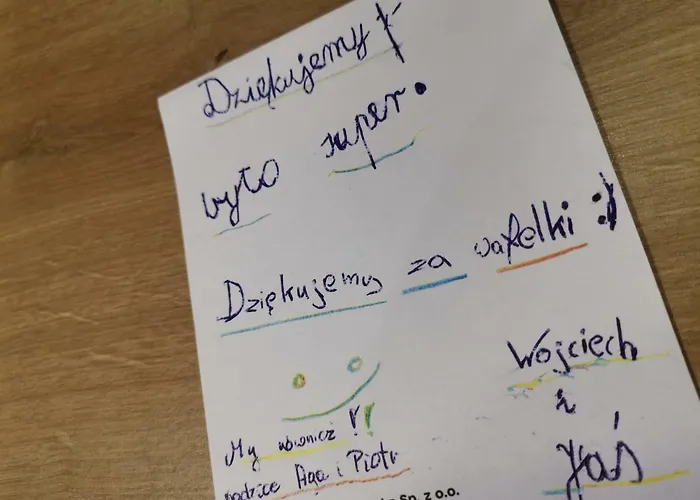 Dziękujemy!
było super.
Dziękujemy za wafelki :)
Wojciech
i
Jaś
My również!!
rodzice Aga i Piotr
Sp. z o.o.